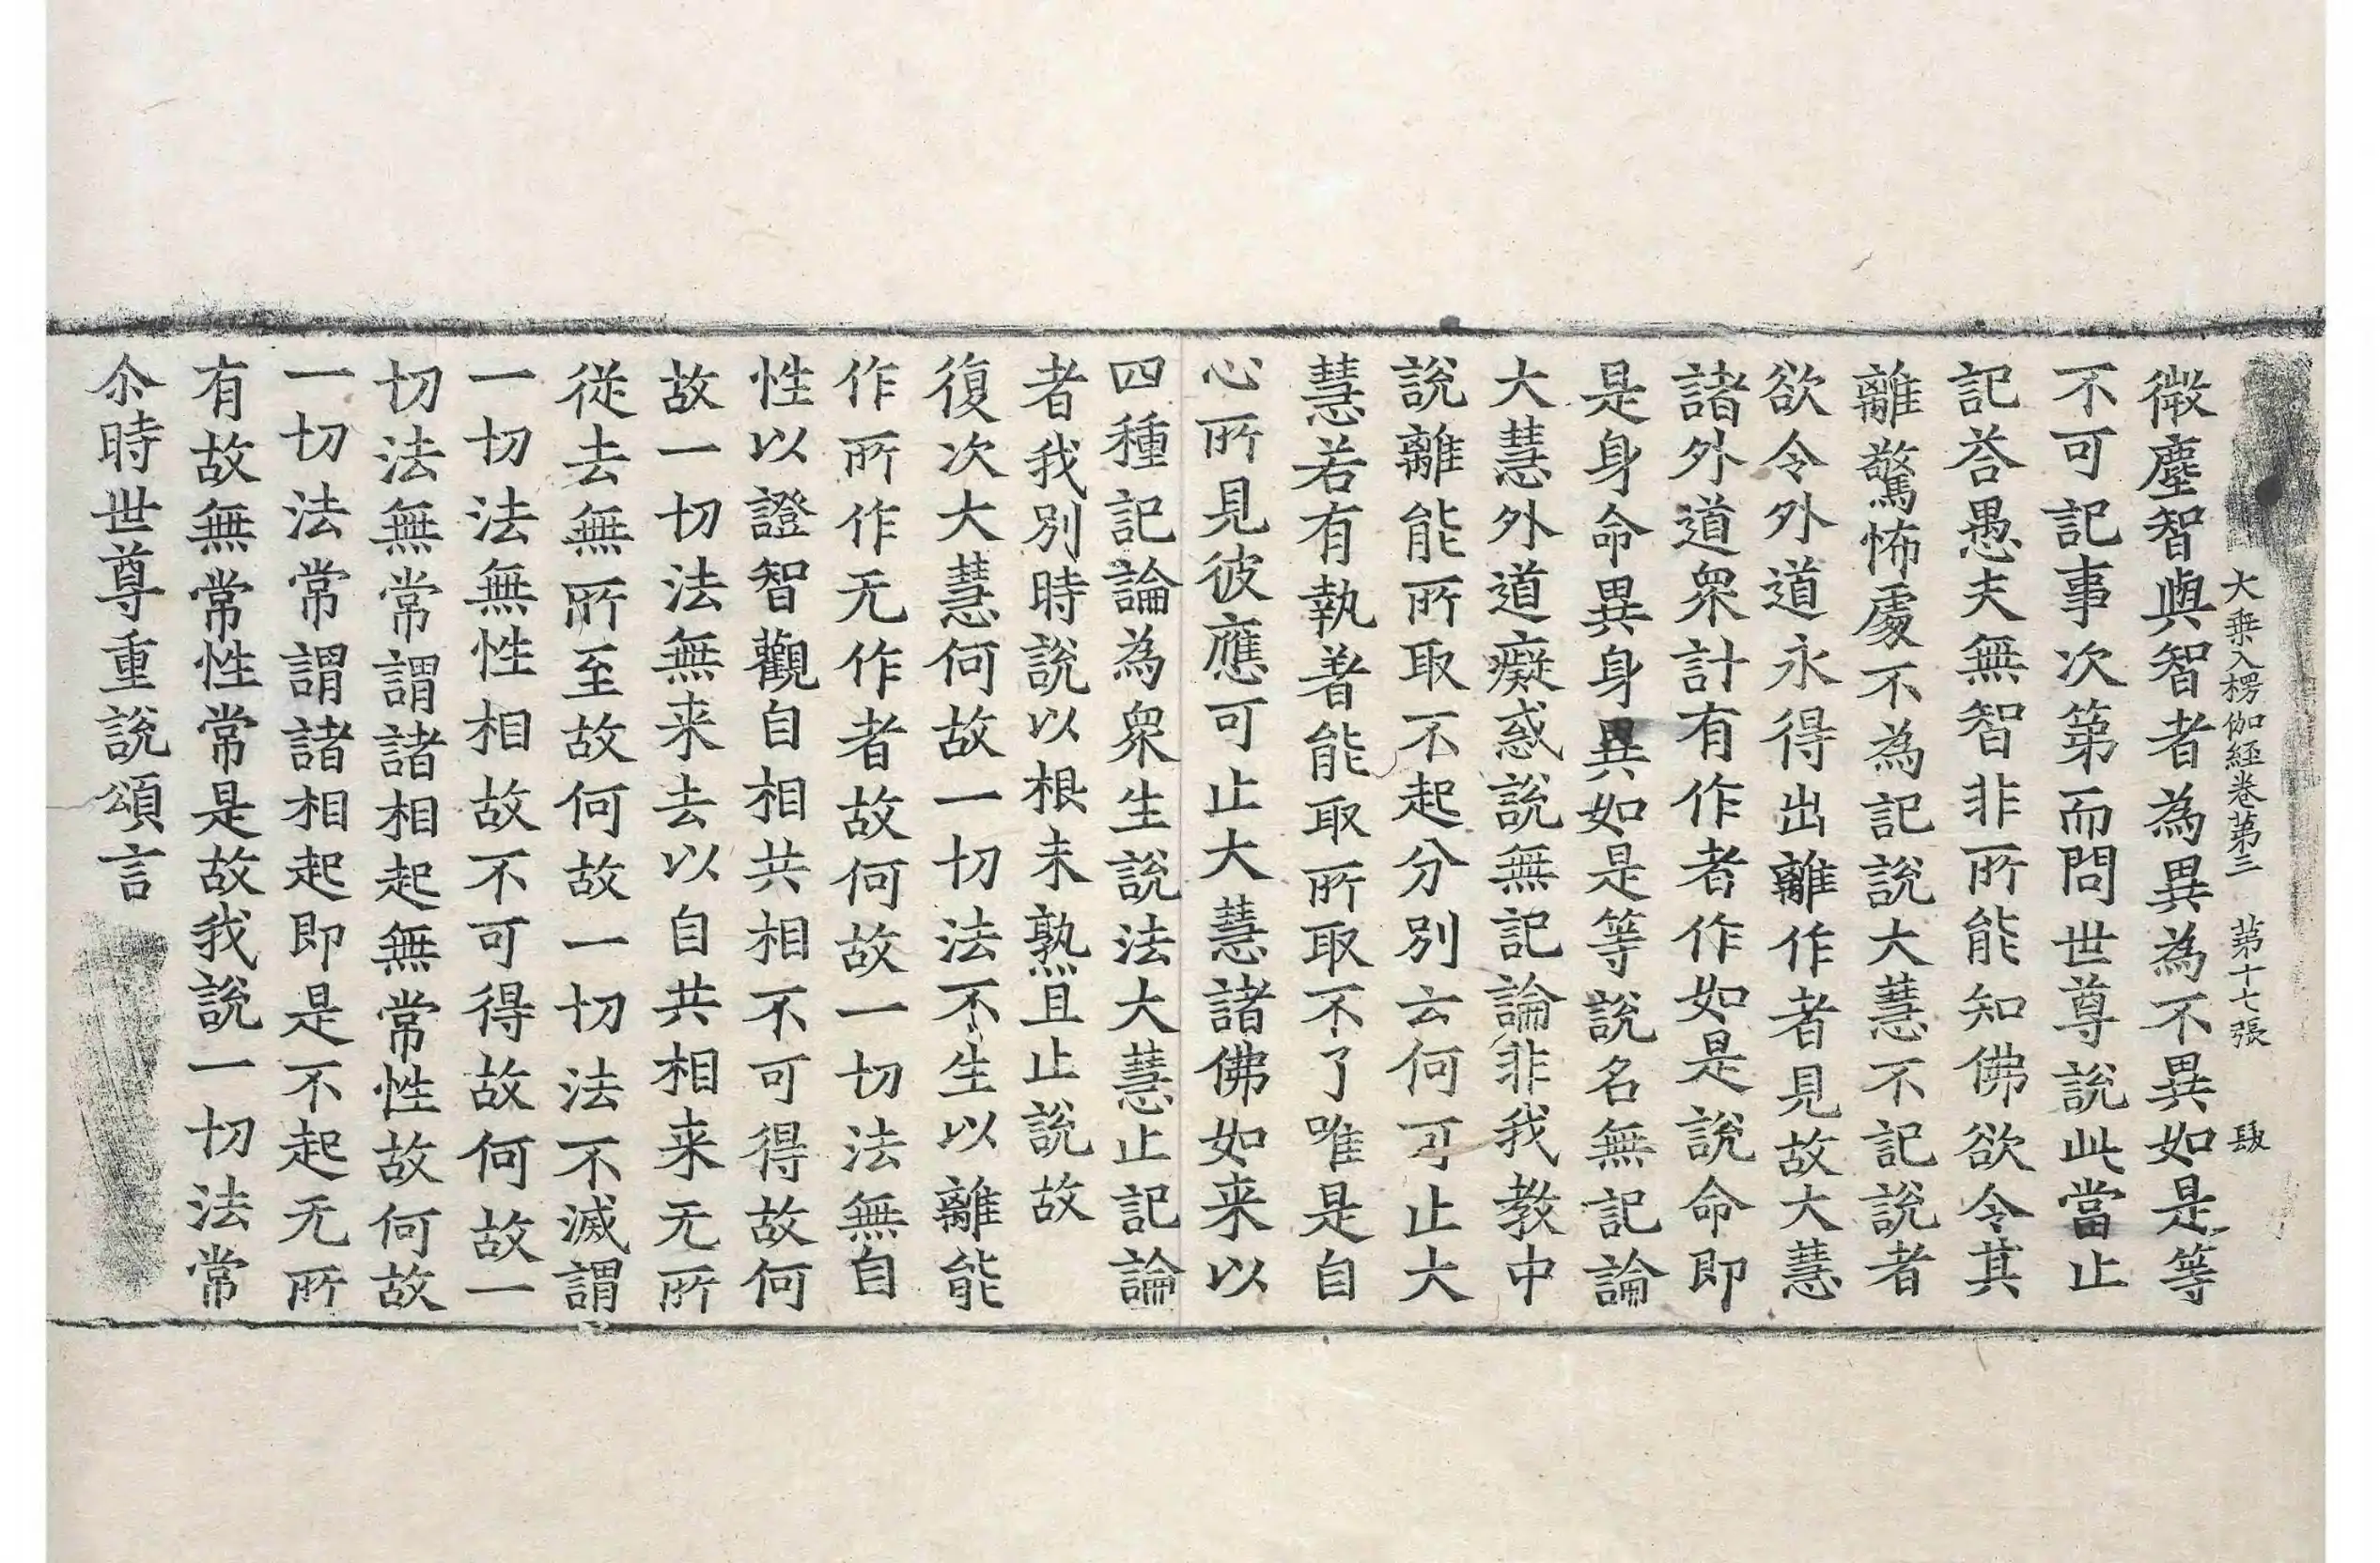 大乘入楞伽經卷第三　第十七張
微塵智與智者為異為不異如是等
不可記事次第而問世尊說此當止
記荅愚夫無智非所能知佛欲令其
離驚怖處不為記說大慧不記說者
欲令外道永得出離作者見故大慧
諸外道衆計有作者作如是說命即
是身命異身異如是等說名無記論
大慧外道癡惑說無記論非我教中
說離能所取不起分別云何可止大
慧若有執著能取所取不了唯是自
心所見彼應可止大慧諸佛如来以
四種記論為衆生說法大慧止記論
者我別時說以根未熟且止說故
復次大慧何故一切法不生以離能
作所作无作者故何故一切法無自
性以證智觀自相共相不可得故何
故一切法無来去以自共相来无所
從去無所至故何故一切法不滅謂
一切法無性相故不可得故何故一
切法無常謂諸相起無常性故何故
一切法常謂諸相起即是不起无所
有故無常性常是故我說一切法常
尒時世尊重說頌言